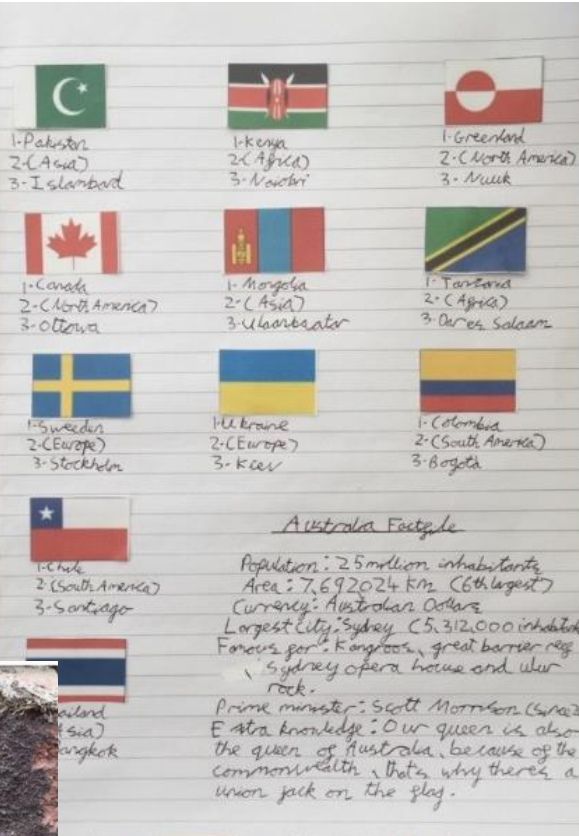 1-Pakistan
2-(Asia)
3-Islambard
1-Kenya
2(Africa)
3-Naiobri
1-Greenland
2-(North America)
3-Nuuk
1-Canada
2-(North America)
3-Ottowa
1-Mongolia
2-(Asia)
3-
1-Tanzania
2-(Africa)
3-Dar es Salaam
1-Sweden
2-(Europe)
3-Stockholm
1-Ukraine
2-(Europe)
3-Kiev
1-Colombia
2-(South America)
3-Bogotá
1-Chile
2-(South America)
3-Santiago
ailand
sia)
angkok
Australia Factfile
Population: 25 million inhabitants
Area: 7,692024 km (6th largest)
Currency: Australian Dollars
Largest city: Sydney (5,312,000 inhabitan
Famous for: Kangroos, great barrier reef
, Sydney opera house and ulur
rock.
Prime minister: Scott Morrison (since
Extra knowledge: Our queen is also
the queen of Australia, because of the
commonwealth, thats why theres a
union jack on the flag.